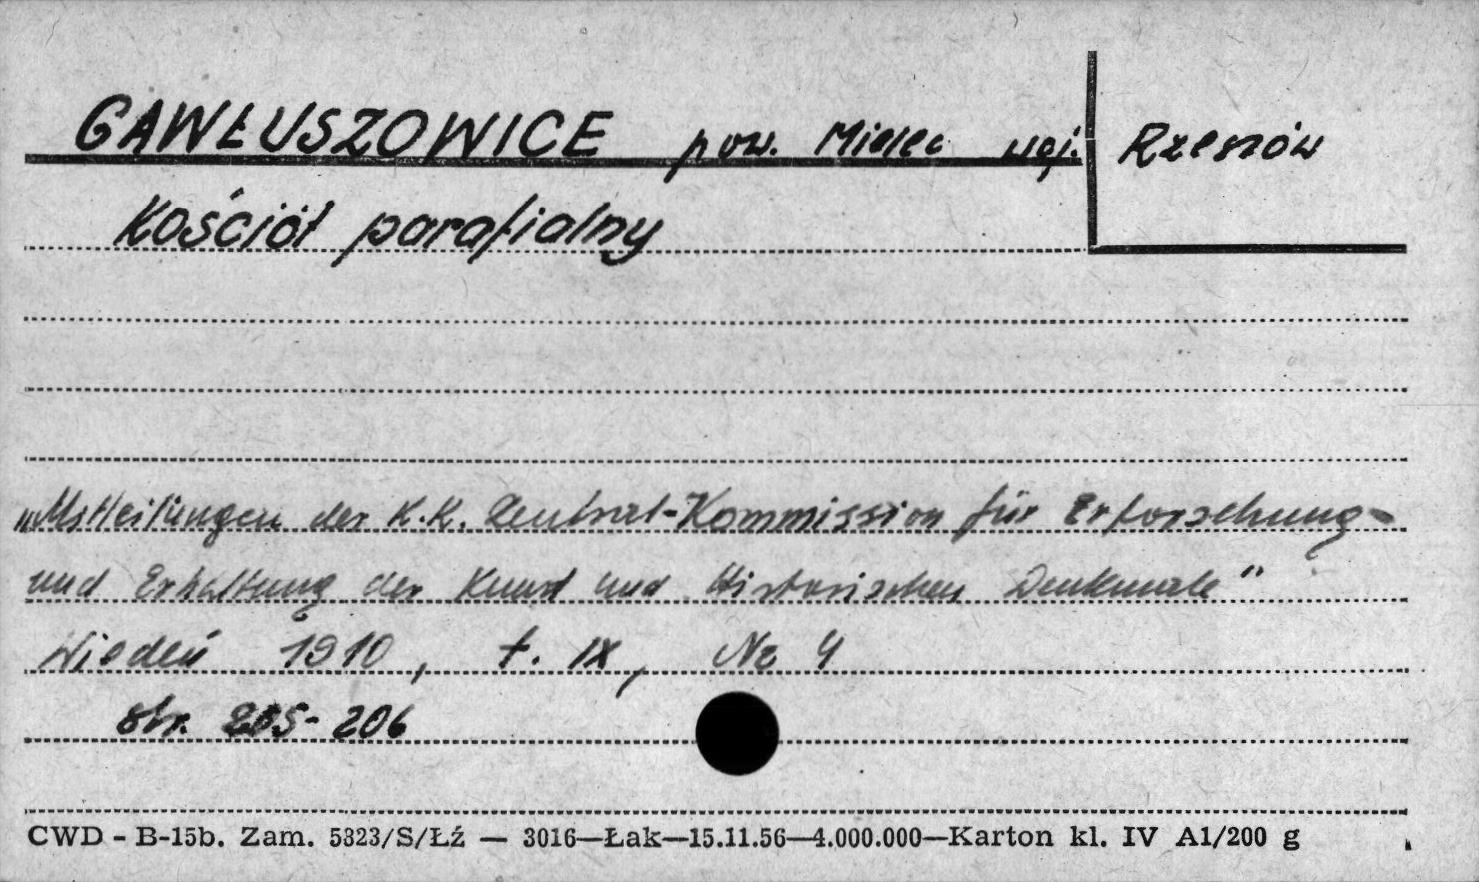 GAWŁUSZOWICE pow. Mielec woj. Rzeszów
Kościół parafialny
„Mitteilungen der K.K. Zentral-Kommission für Erforschung-
und Erhaltung der Kunst und Historischen Denkmale"
Wiedeń 1910, t. IX, Nr 4
str. 205-206
CWD - B-15b. Zam. 5323/S/Łź — 3016—Łak—15.11.56—4.000.000—Karton kl. IV A1/200 g